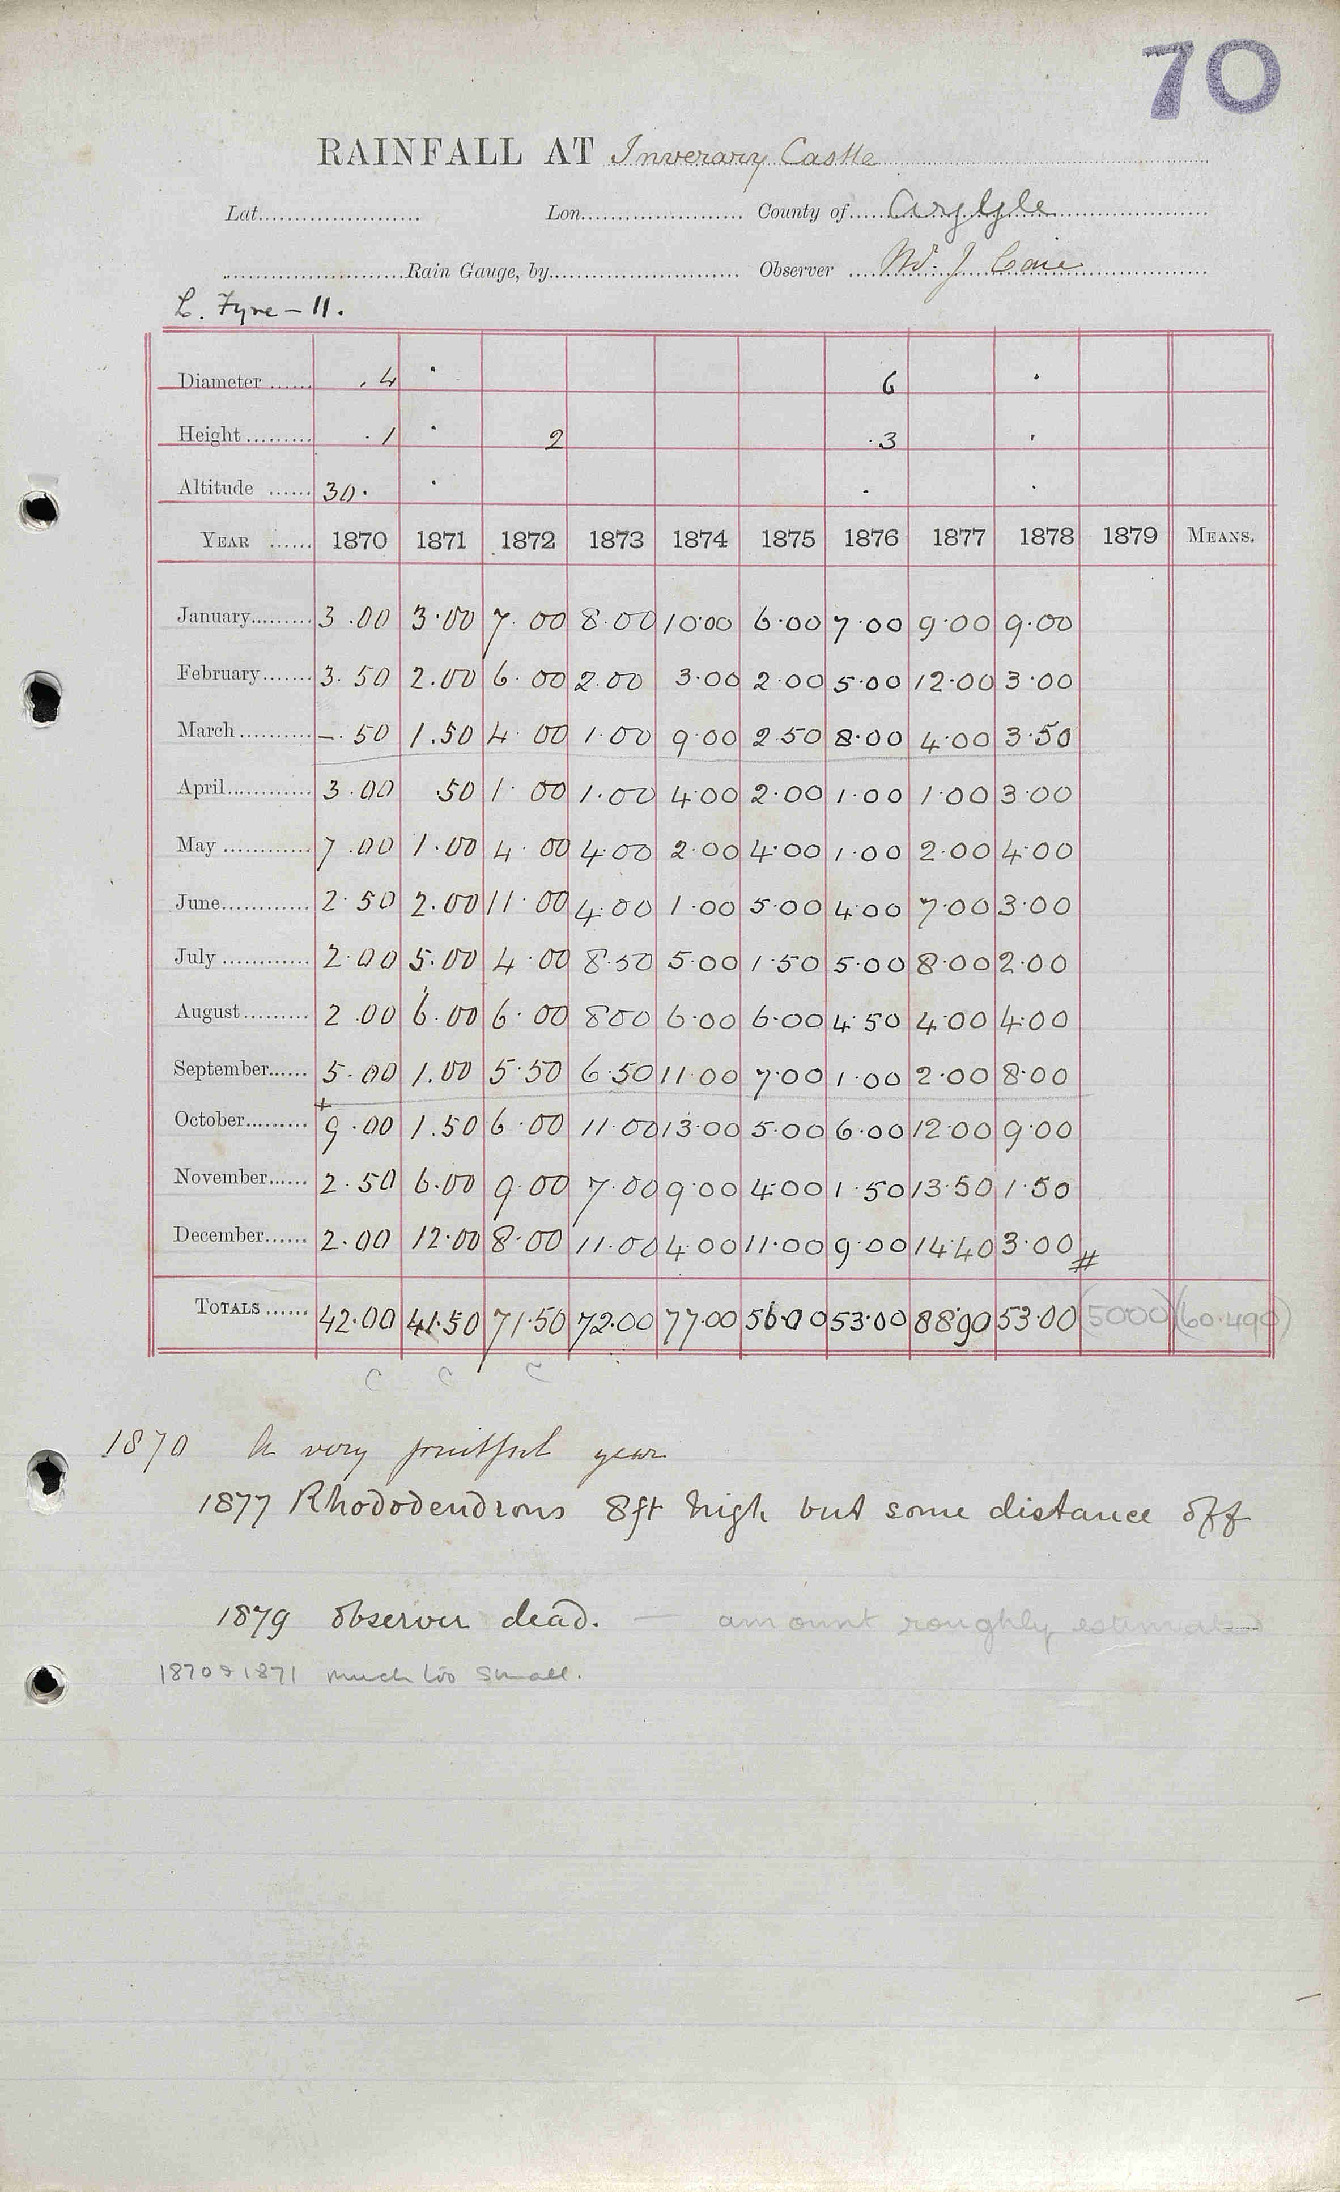 70
RAINFALL AT Inverary Castle
Lat. Lon. County of Argyle
Rain Gauge, by Observer Mr. J. Caie
L. Fyne - 11.
Diameter .4 6
Height .1 2 .3
Altitude 30.
YEAR 1870 1871 1872 1873 1874 1875 1876 1877 1878 1879 MEANS.
January 3.00 3.00 7.00 8.00 10.00 6.00 7.00 9.00 9.00
February 3.50 2.00 6.00 2.00 3.00 2.00 5.00 12.00 3.00
March -.50 1.50 4.00 1.00 9.00 2.50 8.00 4.00 3.50
April 3.00 .50 1.00 1.00 4.00 2.00 1.00 1.00 3.00
May 7.00 1.00 4.00 4.00 2.00 4.00 1.00 2.00 4.00
June 2.50 2.00 11.00 4.00 1.00 5.00 4.00 7.00 3.00
July 2.00 5.00 4.00 8.50 5.00 1.50 5.00 8.00 2.00
August 2.00 6.00 6.00 8.00 6.00 6.00 4.50 4.00 4.00
September 5.00 1.00 5.50 6.50 11.00 7.00 1.00 2.00 8.00
October 9.00 1.50 6.00 11.00 13.00 5.00 6.00 12.00 9.00
November 2.50 6.00 9.00 7.00 9.00 4.00 1.50 13.50 1.50
December 2.00 12.00 8.00 11.00 4.00 11.00 9.00 14.40 3.00 #
TOTALS 42.00 41.50 71.50 72.00 77.00 56.00 53.00 88.90 53.00 (5000) (60.490)
C C C
1870 A very fruitful year
1877 Rhododendrons 8ft high but some distance off
1879 observer dead. — amount roughly estimated
1870 & 1871 much too small.